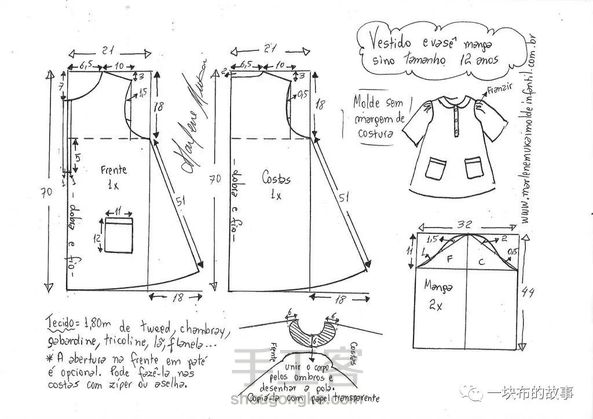 Vestido evasê manga
sino tamanho 12 anos
www.marlenemukaimoldeinfantil.com.br
Franzir
Molde sem
margem de
costura
21
6,5
10
3
7
1,5
18
15
70
Frente
1x
51
11
12
- dobra e fio -
18
Marlene Mukai
21
6,5
10
3
0,5
18
70
Costas
1x
51
- dobra e fio -
18
32
11
1,5
2
1
0,5
F
C
Manga
2x
44
Tecido = 1,80m de tweed, chambray,
gabardine, tricoline, lã, flanela...
* A abertura na frente em patê
é opcional. Pode fazê-la nas
costas com zíper ou aselha.
6
6
6
Frente
Costas
unir o corpo
pelos ombros e
desenhar a gola.
Copiá-la com papel transparente
手工客
shougongke.com
一块布的故事